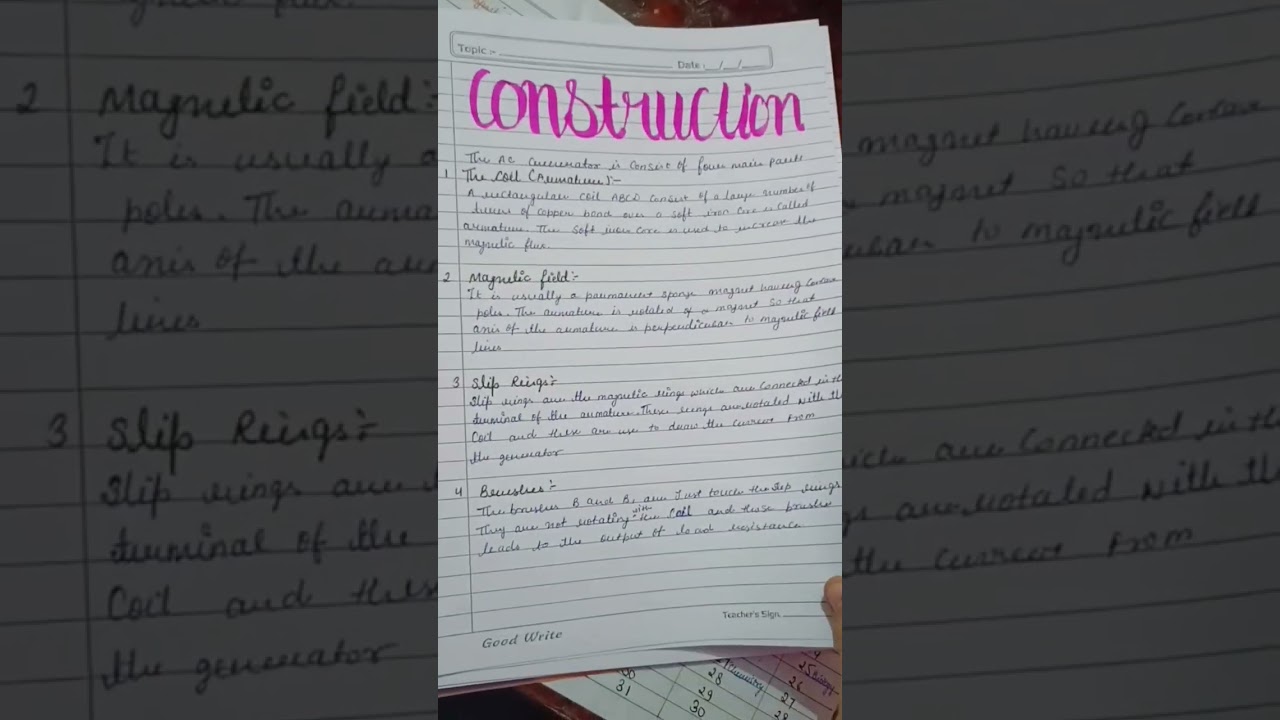 Topic :-
Date :__/__/__
Construction
The AC Generator is consist of four main parts
1 The Coil (Armature):-
A rectangular coil ABCD consist of a large number of
turns of copper bond over a soft iron core is called
armature. The soft iron core is used to increase the
magnetic flux.
2 Magnetic field:-
It is usually a permanent magnet having
poles. The armature is rotated of a magnet so that
axis of the armature is perpendicular to magnetic field
lines
3 Slip Rings:-
Slip rings are the magnetic rings which are connected in the
terminal of the armature. These rings are rotated with th
Coil and these are use to draw the current from
the generator
4 Brushes:-
The brushes B and B, are Just touch the slip rings
They are not rotating with the Coil and these brushes
leads to the output of load resistance
Teacher's Sign
Good Write
31
28
29
30
Chemistry
25 Biology
26
27
28